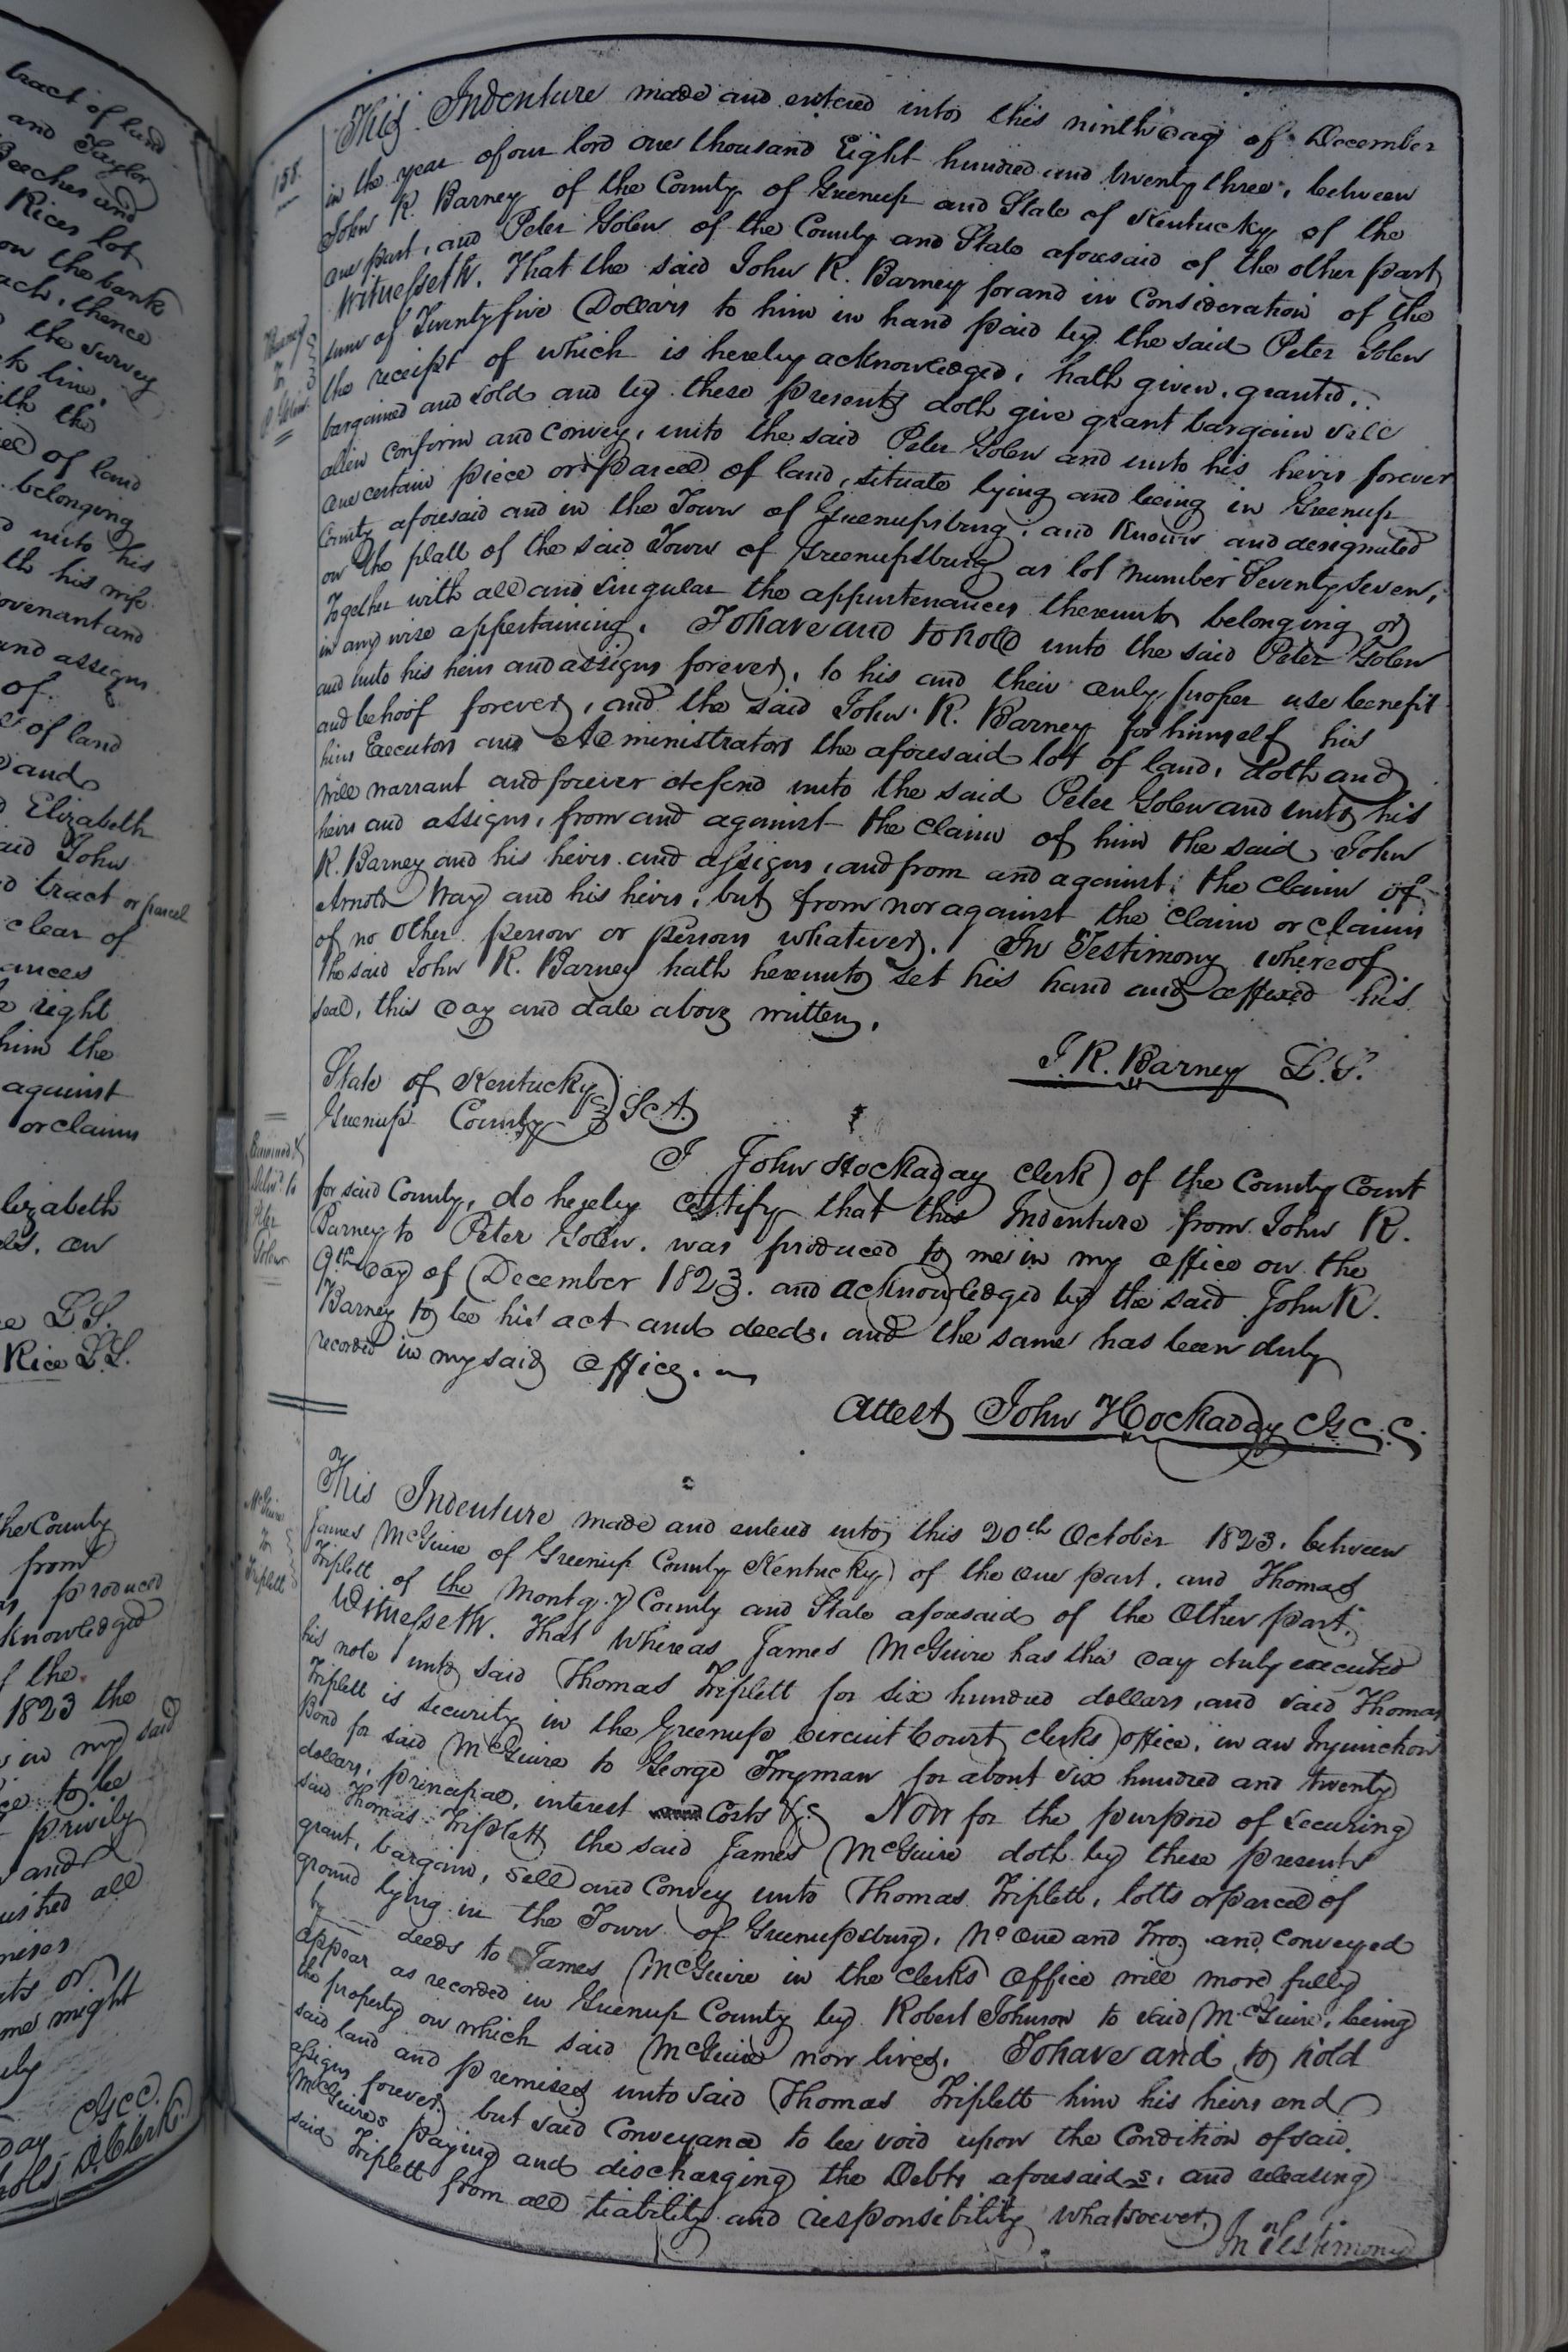 tract of land
and Taylor
Beeches and
Rices lot
on the bank
ach, thence
the survey
k line,
ith the
of land
belonging
unto his
th his wife
ovenant and
and assigns
of
of land
and
Elizabeth
aid John
tract or parcel
clear of
ances
right
him the
against
or claims
lizabeth
on
L.S.
Rice L.S.
the County
from
produced
knowledged
the
1823 the
in my said
to be
privily
and
uished all
mises
its or
me might
GCC.
Day
D. Clerk
158.
This Indenture made and entered into this ninth day of December
in the year of our lord one thousand Eight hundred and twenty three, between
John R. Barney of the County of Greenup and State of Kentucky of the
one part, and Peter Golen of the County and State aforesaid of the other part
Witnesseth. That the said John R. Barney for and in Consideration of the
sum of Twenty five Dollars to him in hand paid by the said Peter Golen
the receipt of which is hereby acknowledged, hath given, granted,
bargained and sold and by these presents doth give grant bargain sell
alien Confirm and Convey, unto the said Peter Golen and unto his heirs forever
one certain piece or parcel of land, situate lying and being in Greenup
County aforesaid and in the Town of Greenupsburg, and Known and designated
on the platt of the said Town of Greenupsburg as lot number Seventy Seven,
Together with all and singular the appurtenances thereunto belonging or
in any wise appertaining. To have and to hold unto the said Peter Golen
and unto his heirs and assigns forever, to his and their only proper use benefit
and behoof forever, and the said John R. Barney for himself his
heirs Executors and Administrators the aforesaid lot of land, doth and
will warrant and forever defend unto the said Peter Golen and unto his
heirs and assigns, from and against the claim of him the said John
R. Barney and his heirs and assigns, and from and against the claim of
Arnold Way and his heirs, but from nor against the claim or claims
of no other person or persons whatever. In Testimony whereof
the said John R. Barney hath hereunto set his hand and affixed his
seal, this day and date above written.
Barney
To
P. Golen
J. R. Barney L.S.
State of Kentucky
Greenup County } Sct.
I John Hockaday clerk of the County Court
for said County, do hereby certify that this Indenture from John R.
Barney to Peter Golen. was produced to me in my office on the
9th day of December 1823. and acknowledged by the said John R.
Barney to be his act and deed, and the same has been duly
recorded in my said office.
Examined &
Deliv'd to
Peter
Golen
Attest John Hockaday C.G.C.C.
This Indenture made and entered into this 20th October 1823. between
James McGuire of Greenup County Kentucky of the one part, and Thomas
Triplett of the Montg.y County and State aforesaid of the Other part.
Witnesseth. That Whereas James McGuire has this day duly executed
his note unto said Thomas Triplett for six hundred dollars, and said Thomas
Triplett is security in the Greenup Circuit Court clerks office, in an Injunction
Bond for said McGuire to George Fryman for about six hundred and twenty
dollars, principal, interest Costs &c Now for the purpose of securing
said Thomas Triplett the said James McGuire doth by these presents
grant, bargain, sell and Convey unto Thomas Triplett, lotts or parcel of
ground lying in the Town of Greenupsburg, No One and Two and Conveyed
by deeds to James McGuire in the Clerks Office will more fully
appear as recorded in Greenup County by Robert Johnson to said McGuire, being
the property on which said McGuire now lives. To have and to hold
said land and premises unto said Thomas Triplett him his heirs and
assigns forever, but said Conveyance to be void upon the Condition of said
McGuires paying and discharging the Debts aforesaid, and releasing
said Triplett from all liability and responsibility whatsoever.
In Testimony
McGuire
To
Triplett